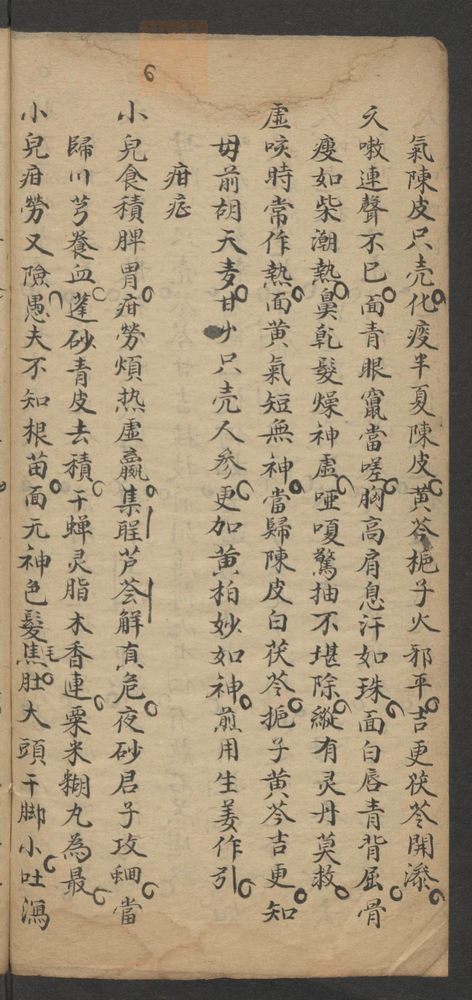 氣陳皮只壳化痰半夏陳皮黄芩梔子火邪平吉更茯苓開滲
久嗽連聲不已面青眼竄當嗟胸高肩息汗如珠面白唇青背屈骨
瘦如柴潮熱鼻乾髮燥神虛啞嗄驚抽不堪除縱有灵丹莫救
虛咳時常作熱面黄氣短無神當歸陳皮白茯苓梔子黄芩吉更知
母前胡天麥甘少只壳人參更加黄柏妙如神煎用生姜作引
疳症
小兒食積脾胃疳勞煩热虛羸集聖芦荟解真危夜砂君子攻蛔當
歸川芎養血蓬砂青皮去積干蟬灵脂木香連粟米糊丸為最
小兒疳勞又險愚夫不知根苗面无神色髮毛焦肚大頭干脚小吐瀉